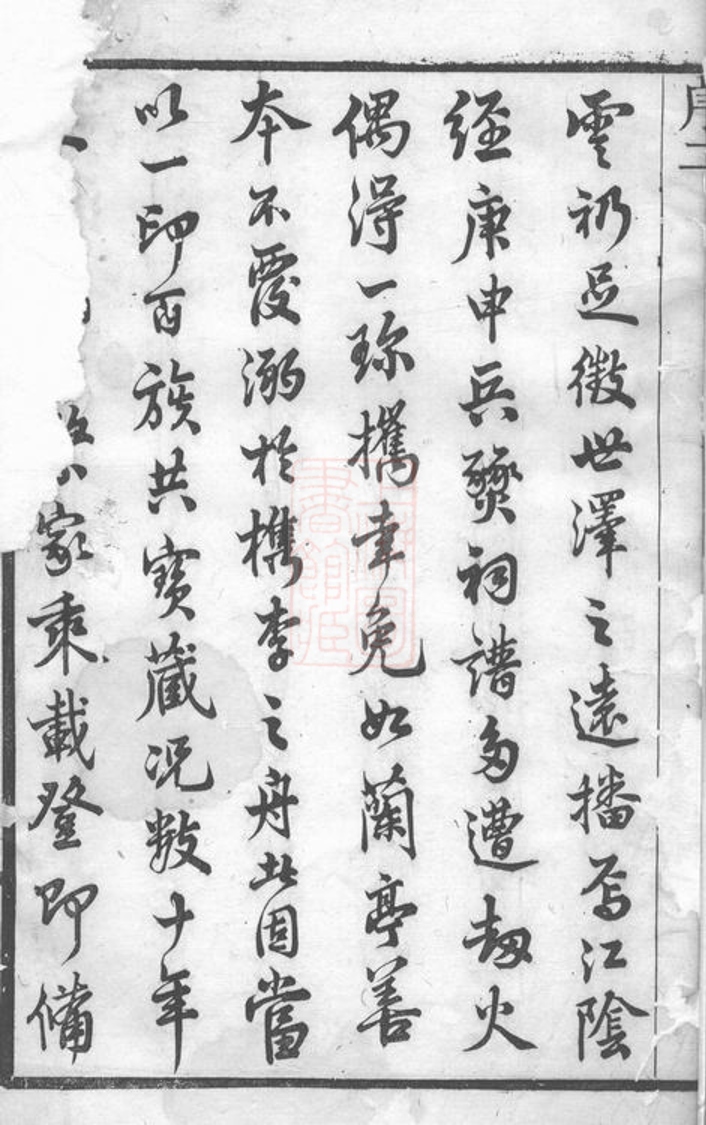 雲礽足徵世澤之遠播焉江陰
經庚申兵燹祠譜多遭劫火
偶得一珎攜幸免如蘭亭善
本不覆溺於檇李之舟此固當
以一印百族共寶藏况數十年
家乘載登即備
序二